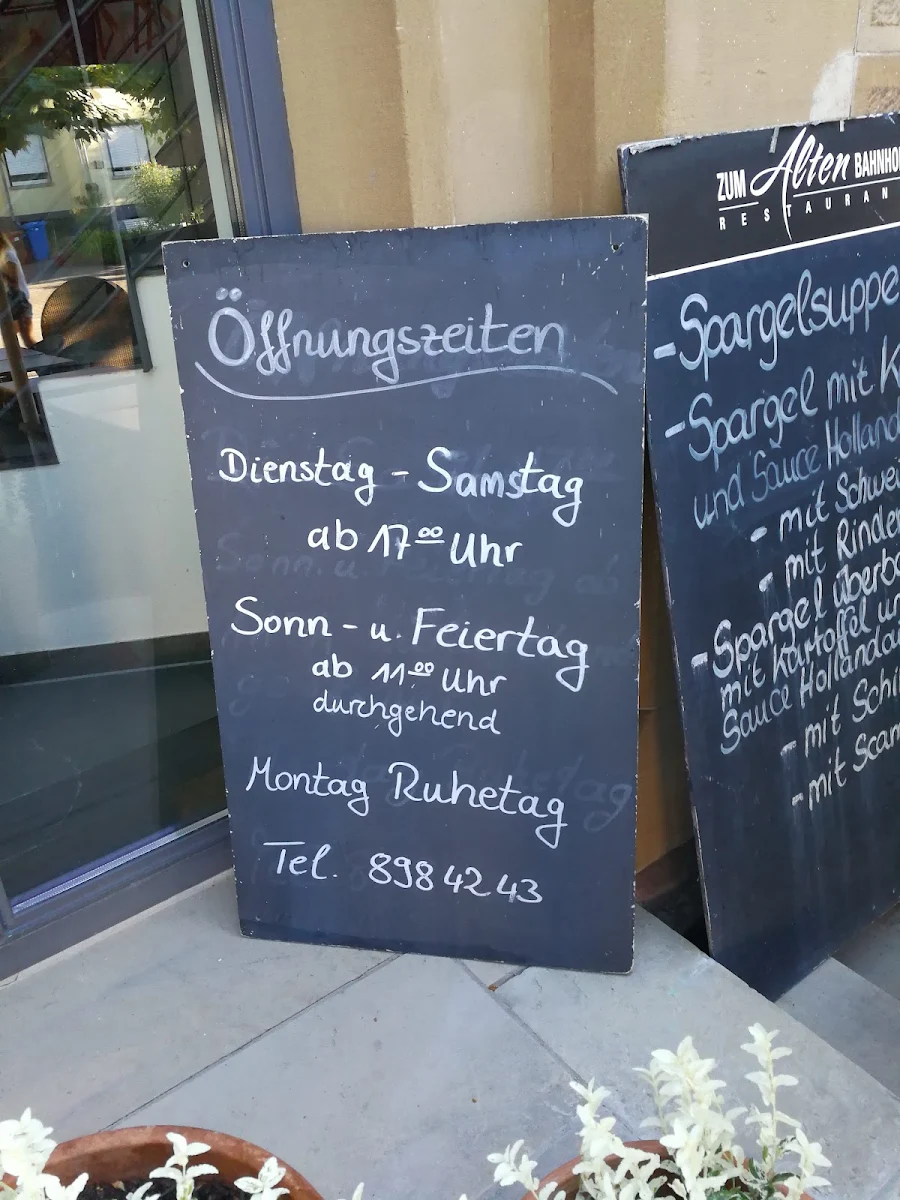 Öffnungszeiten
Dienstag - Samstag
ab 17⁰⁰ Uhr
Sonn- u. Feiertag
ab 11⁰⁰ Uhr
durchgehend
Montag Ruhetag
Tel. 8984243
ZUM Alten BAHNHO
RESTAURAN
- Spargelsuppe
- Spargel mit K
und Sauce Holland
- mit Schwei
- mit Rinder
- Spargel überba
mit Kartoffel un
Sauce Hollandai
- mit Schi
- mit Scam